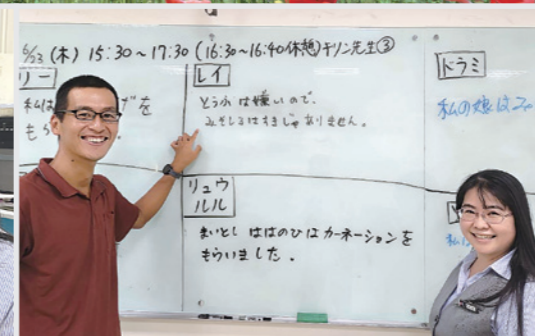 6/23 (木) 15:30～17:30 (16:30～16:40休憩) チリン先生③
リー
私は げを
もら
レイ
とうふは嫌いので、
みそしるはすきじゃありません。
ドラミ
私の娘は
リュウ
ルル
まいとし ははのひはカーネーションを
もらいました。
私は